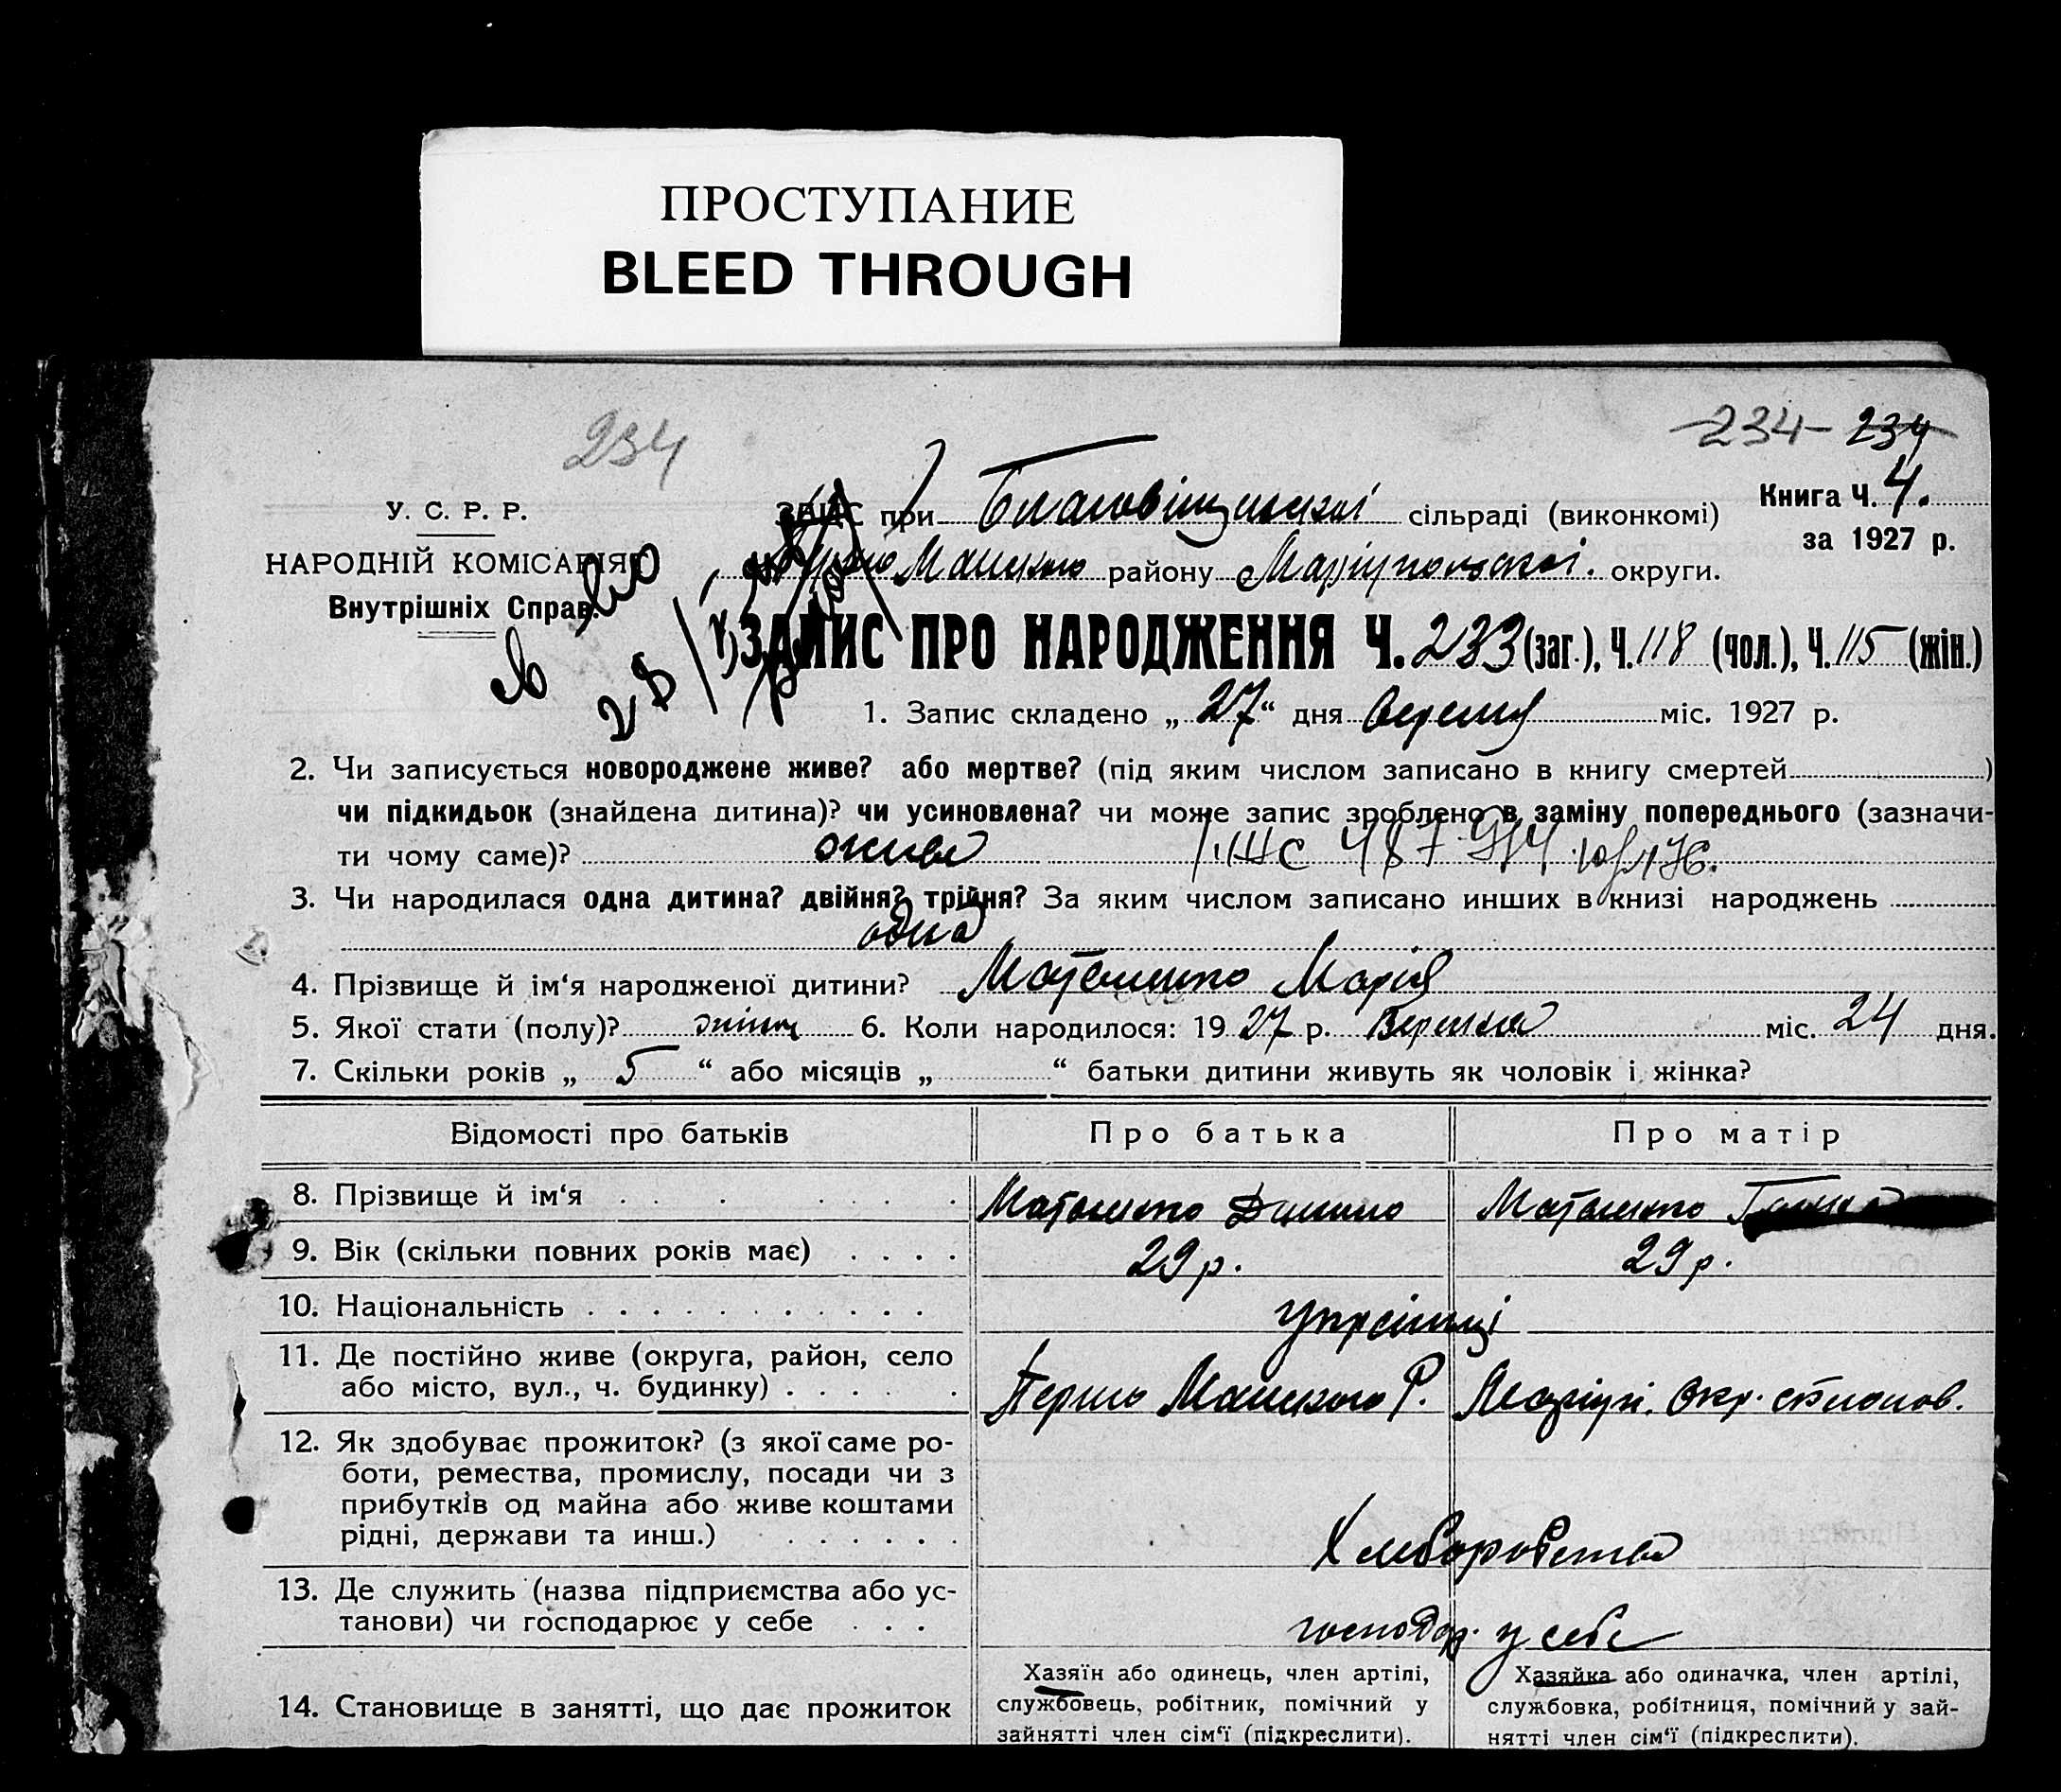 ПРОСТУПАНИЕ
BLEED THROUGH
234
234 234
У. С. Р. Р.
НАРОДНІЙ КОМІСАРІЯТ
Внутрішніх Справ.
ЗАЦС при Благовіщенскі сільраді (виконкомі)
Книга Ч. 4.
за 1927 р.
Мангуського району Маріупольскої округи.
ЗАПИС ПРО НАРОДЖЕННЯ Ч. 233 (заг.), Ч. 118 (чол.), Ч. 115 (жін.)
1. Запис складено „ 27 “ дня вересня міс. 1927 р.
2. Чи записується новороджене живе? або мертве? (під яким числом записано в книгу смертей )
чи підкидьок (знайдена дитина)? чи усиновлена? чи може запис зроблено в заміну попереднього (зазначи-
ти чому саме)? живе
3. Чи народилася одна дитина? двійня? трійня? За яким числом записано инших в книзі народжень
одна
4. Прізвище й ім‘я народженої дитини? Марія
5. Якої стати (полу)? жіноч 6. Коли народилося: 19 27 р. Вересня міс. 24 дня.
7. Скільки років „ 5 “ або місяців „ “ батьки дитини живуть як чоловік і жінка?
Відомості про батьків Про батька Про матір
8. Прізвище й ім‘я Данило
9. Вік (скільки повних років має) 29 р. 29 р.
10. Національність українці
11. Де постійно живе (округа, район, село
або місто, вул., ч. будинку) Першо Р. Маріуп. Окр.
12. Як здобуває прожиток? (з якої саме ро-
боти, ремества, промислу, посади чи з
прибутків од майна або живе коштами
рідні, держави та инш.) Хліборобство
13. Де служить (назва підприємства або ус-
танови) чи господарює у себе господар. у себе
14. Становище в занятті, що дає прожиток
Хазяїн або одинець, член артілі,
службовець, робітник, помічний у
зайнятті член сім‘ї (підкреслити).
Хазяйка або одиначка, член артілі,
службовка, робітниця, помічний у зай-
нятті член сім‘ї (підкреслити).